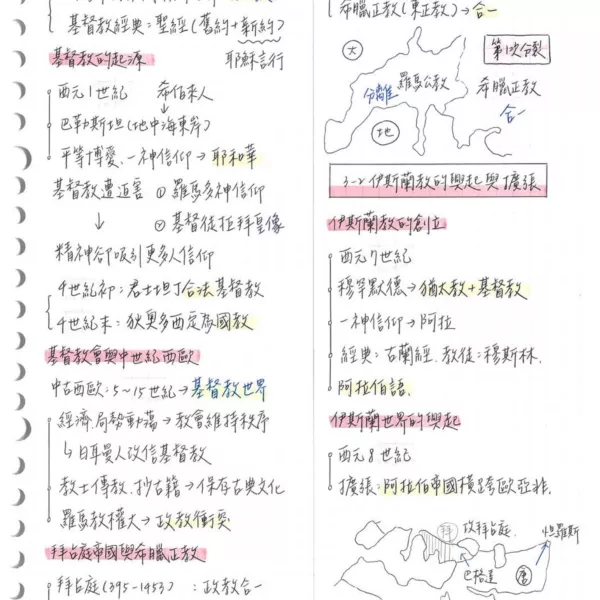 基督教經典：聖經(舊約+新約)
基督教的起源 耶穌言行
西元1世紀 希伯來人
巴勒斯坦(地中海東岸)
平等博愛、一神信仰→耶和華
基督教遭迫害 ① 羅馬多神信仰
↓ ② 基督徒拒拜皇像
精神卻吸引更多人信仰
4世紀初：君士坦丁合法基督教
4世紀末：狄奧多西定為國教
基督教會與中世紀西歐
中古西歐：5~15世紀→基督教世界
經濟、局勢動蕩→教會維持秩序
↳日耳曼人改信基督教
教士傳教、抄古籍→保存古典文化
羅馬教權大→政教衝突
拜占庭帝國與希臘正教
拜占庭(395-1453)：政教合一
希臘正教(東正教)→合一
第1次分裂
大
羅馬公教
希臘正教
分離
合一
地
3-2 伊斯蘭教的興起與擴張
伊斯蘭教的創立
西元7世紀
穆罕默德→猶太教+基督教
一神信仰→阿拉
經典：古蘭經、教徒：穆斯林、
阿拉伯語、
伊斯蘭世界的興起
西元8世紀
擴張：阿拉伯帝國橫跨歐亞非、
拜
攻拜占庭、
怛羅斯
巴格達
唐